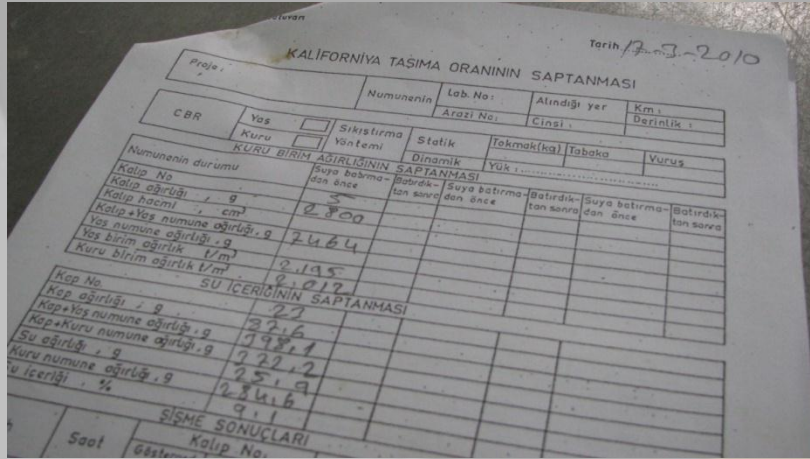 Tarih 17-3-2010
KALİFORNİYA TAŞIMA ORANININ SAPTANMASI
Proje:
Numunenin
Lab. No:
Alındığı yer
Km:
Arazi No:
Cinsi:
Derinlik:
CBR
Yaş
Kuru
Sıkıştırma Yöntemi
Statik
Tokmak(kg)
Tabaka
Vuruş
Dinamik
Yük:
KURU BİRİM AĞIRLIĞININ SAPTANMASI
Numunenin durumu
Suya batırma-dan önce
Batırdık-tan sonra
Suya batırma-dan önce
Batırdık-tan sonra
Suya batırma-dan önce
Batırdık-tan sonra
Kalıp No 5
Kalıp ağırlığı, g 2800
Kalıp hacmi, cm³
Kalıp+Yaş numune ağırlığı, g 7464
Yaş numune ağırlığı, g
Yaş birim ağırlık t/m³ 2.195
Kuru birim ağırlık t/m³ 2.012
SU İÇERİĞİNİN SAPTANMASI
Kap No. 22
Kap ağırlığı, g 37.6
Kap+Yaş numune ağırlığı, g 398.1
Kap+Kuru numune ağırlığı, g
Su ağırlığı, g 25.9
Kuru numune ağırlığı, g 284.6
Su içeriği, % 9.1
ŞİŞME SONUÇLARI
Saat
Kalıp No: